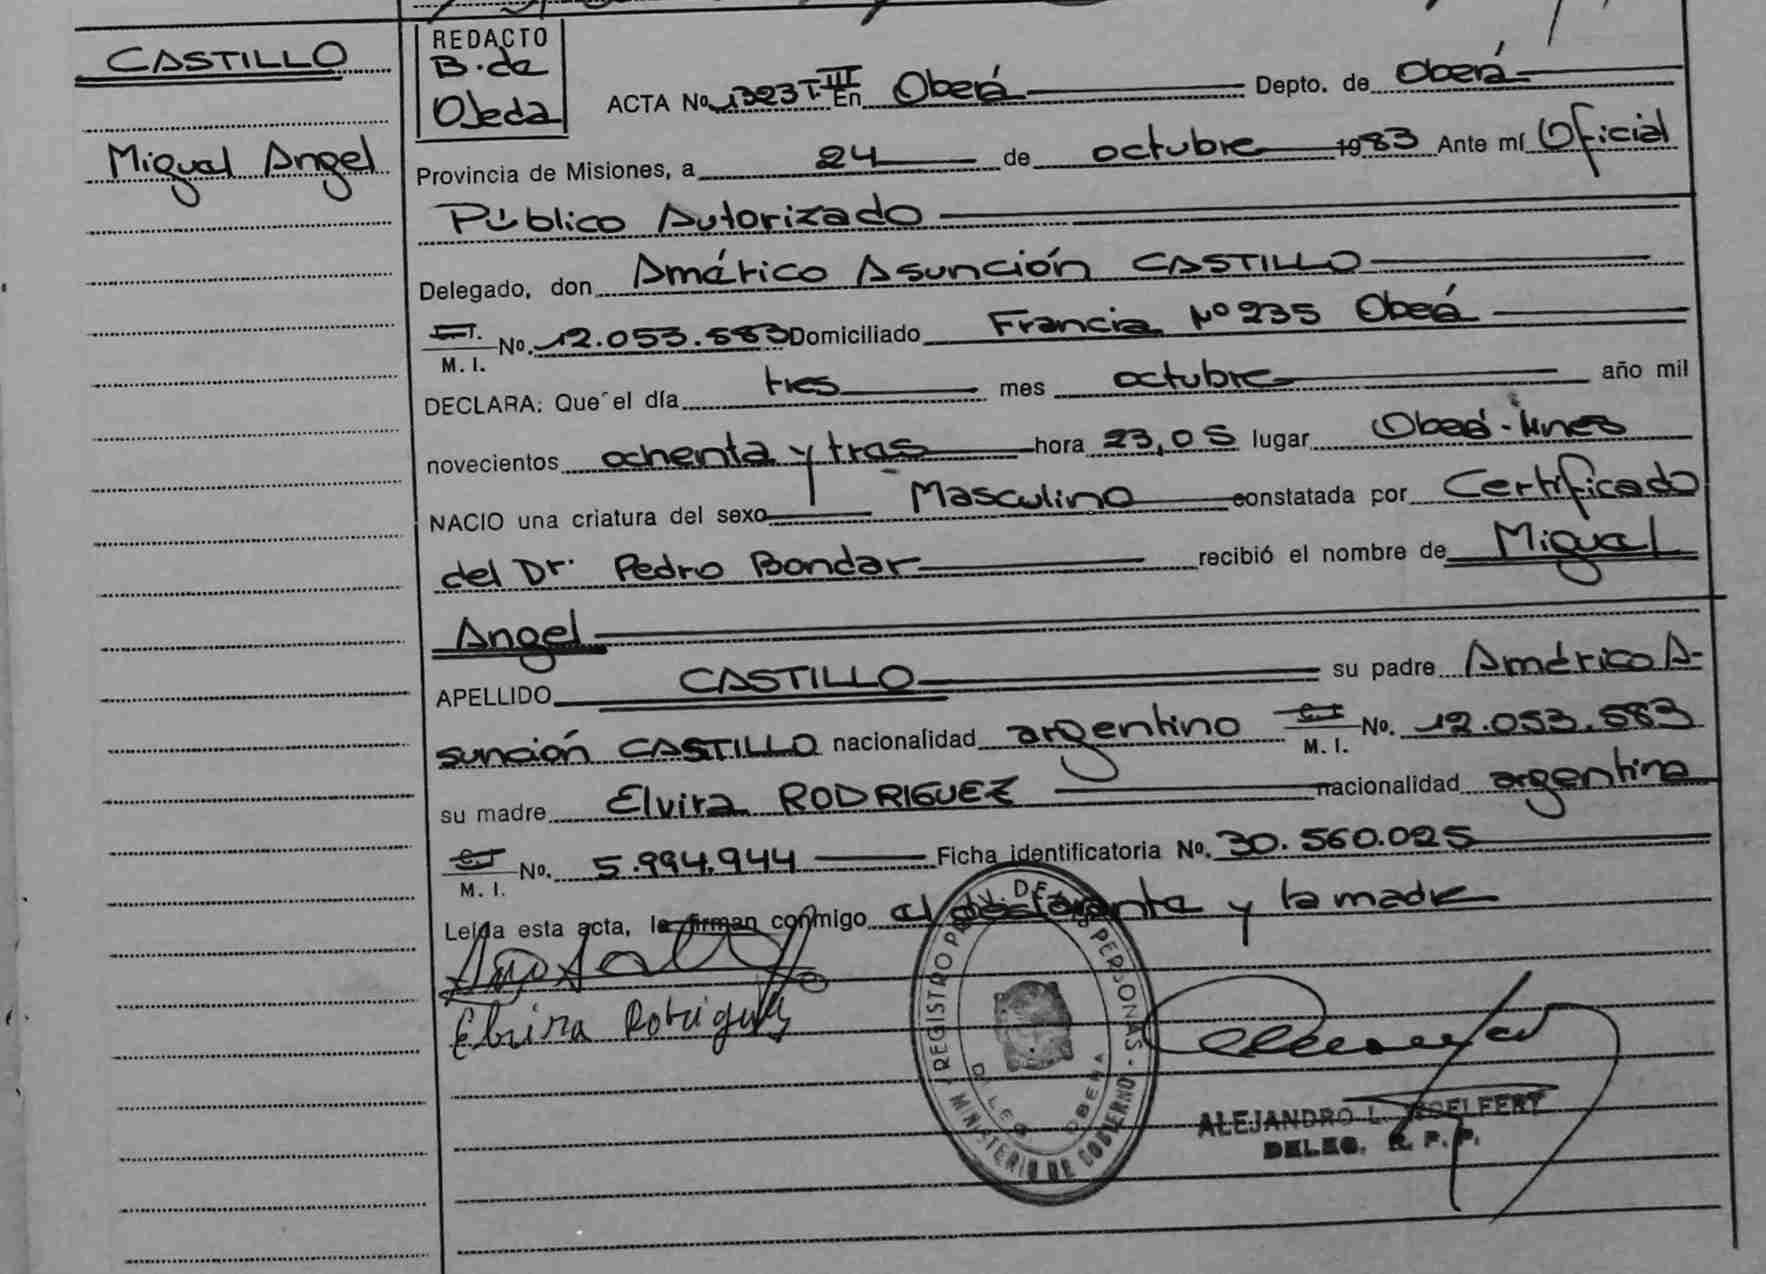 CASTILLO
Miguel Angel
REDACTO
B. de
Ojeda
ACTA No. 1323 T. III En Oberá Depto. de Oberá
Provincia de Misiones, a 24 de octubre 1983 Ante mí Oficial
Público Autorizado
Delegado, don Américo Asunción CASTILLO
C.I. M.I. No. 12.053.583 Domiciliado Francia Nº 235 Oberá
DECLARA: Que el día tres mes octubre año mil
novecientos ochenta y tres hora 23,05 lugar Oberá - Mnes
NACIO una criatura del sexo Masculino constatada por Certificado
del Dr. Pedro Bondar recibió el nombre de Miguel
Angel
APELLIDO CASTILLO su padre Américo A-
sunción CASTILLO nacionalidad argentino C.I. M.I. No. 12.053.583
su madre Elvira RODRIGUEZ nacionalidad argentina
C.I. M.I. No. 5.994.944 Ficha identificatoria No. 30.560.025
Leída esta acta, la firman conmigo el declarante y la madre
Elvira Rodriguez
REGISTRO DE PERSONAS
MINISTERIO DE GOBIERNO
DELEG OBERA
ALEJANDRO L.
DELEG. R. P. P.